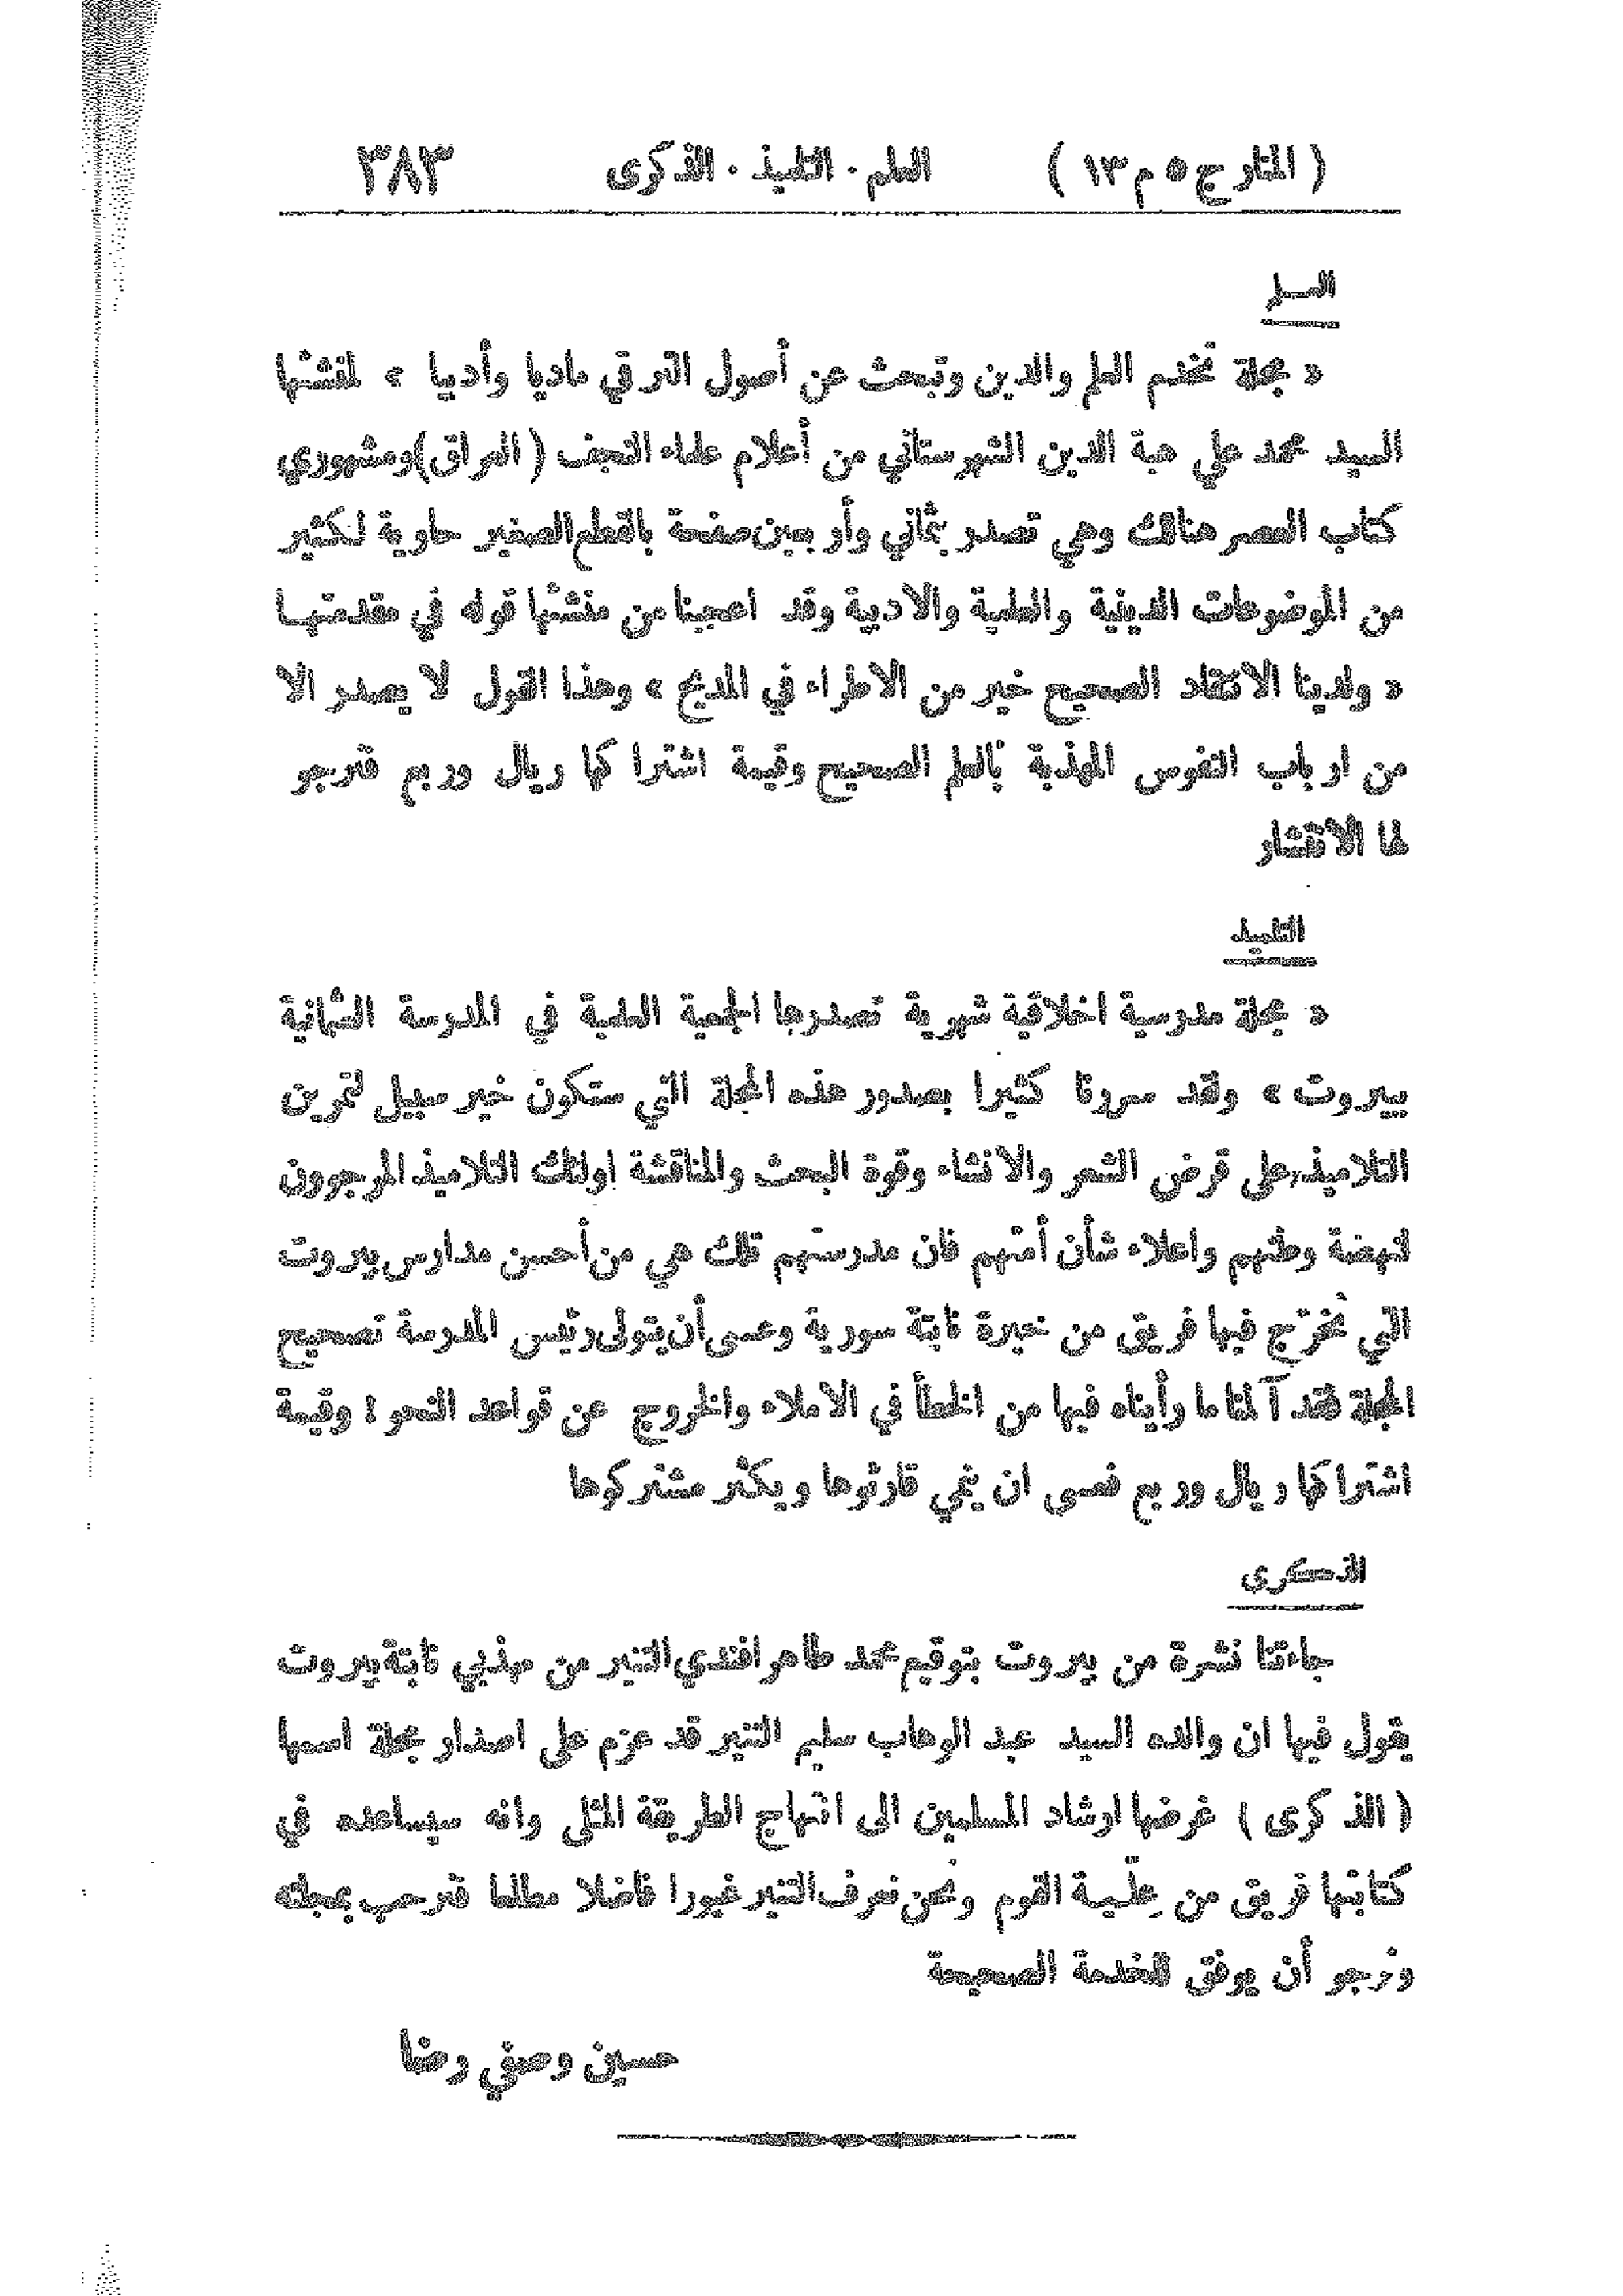 ( المنار ج ٥ م ١٣ ) العلم . التلميذ . الذكرى ٣٨٣
العلم
« مجلة تخدم العلم والدين وتبحث عن أصول الترقي ماديا وأدبيا » لمنشئها
السيد محمد علي هبة الدين الشهرستاني من أعلام علماء النجف ( العراق ) ومشهوري
كتاب العصر هنالك وهي تصدر بثماني وأربعين صفحة بالقطع الصغير حاوية لكثير
من الموضوعات الدينية والعلمية والادبية وقد اعجبنا من منشئها قوله في مقدمتها
« ولدينا الانتقاد الصحيح خير من الاطراء في المديح » وهذا القول لا يصدر الا
من ارباب النفوس المهذبة بالعلم الصحيح وقيمة اشتراكها ريال وربع فنرجو
لها الانتشار
التلميذ
« مجلة مدرسية اخلاقية شهرية تصدرها الجمعية العلمية في المدرسة العثمانية
ببيروت » ولقد سررنا كثيرا بصدور هذه المجلة التي ستكون خير سبيل لتمرين
التلاميذ على قرض الشعر والانشاء وقوة البحث والمناقشة اولئك التلاميذ المرجوون
لنهضة وطنهم واعلاء شأن أمتهم فان مدرستهم تلك هي من أحسن مدارس بيروت
التي تخرّج فيها فريق من خيرة نابتة سورية وعسى أن يتولى رئيس المدرسة تصحيح
المجلة فقد آلمنا ما رأيناه فيها من الخطأ في الاملاء والخروج عن قواعد النحو ! وقيمة
اشتراكها ريال وربع فعسى ان ينمي قارئوها ويكثر مشتركوها
الذكرى
جاءتنا نشرة من بيروت بتوقيع محمد طاهر افندي التنير من مهذبي نابتة بيروت
يقول فيها ان والده السيد عبد الوهاب سليم التنير قد عزم على اصدار مجلة اسمها
( الذكرى ) غرضها ارشاد المسلمين الى انتهاج الطريقة المثلى وانه سيساعده في
كتابتها فريق من عِلّية القوم ونحن نعرف التنير غيورا فاضلا مطلعا فنرحب بمجلته
ونرجو أن يوفق للخدمة الصحيحة
حسين وصفي رضا